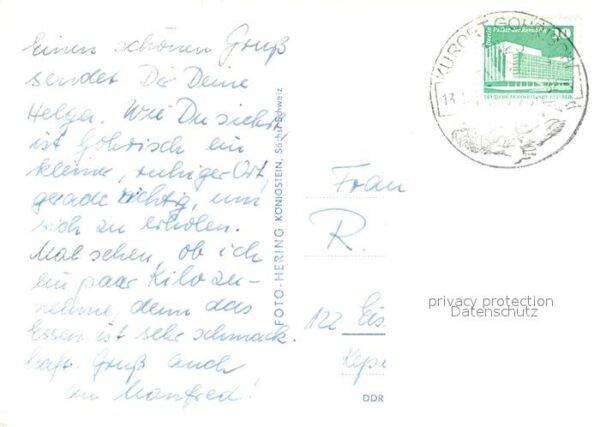 Einen schönen Gruß
sendet Dir Deine
Helga. Wie Du siehst
ist Gohrisch ein
kleiner, ruhiger Ort,
gerade richtig, um
sich zu erholen.
Mal sehen, ob ich
ein paar Kilo zu-
nehme, denn das
Essen ist sehr schmack-
haft. Gruß auch
an Manfred!
FOTO-HERING KÖNIGSTEIN, Sächs. Schweiz
KURORT GOHRISCH
Berlin Palast der Republik 10
Frau
R.
122 Eis
DDR
privacy protection
Datenschutz